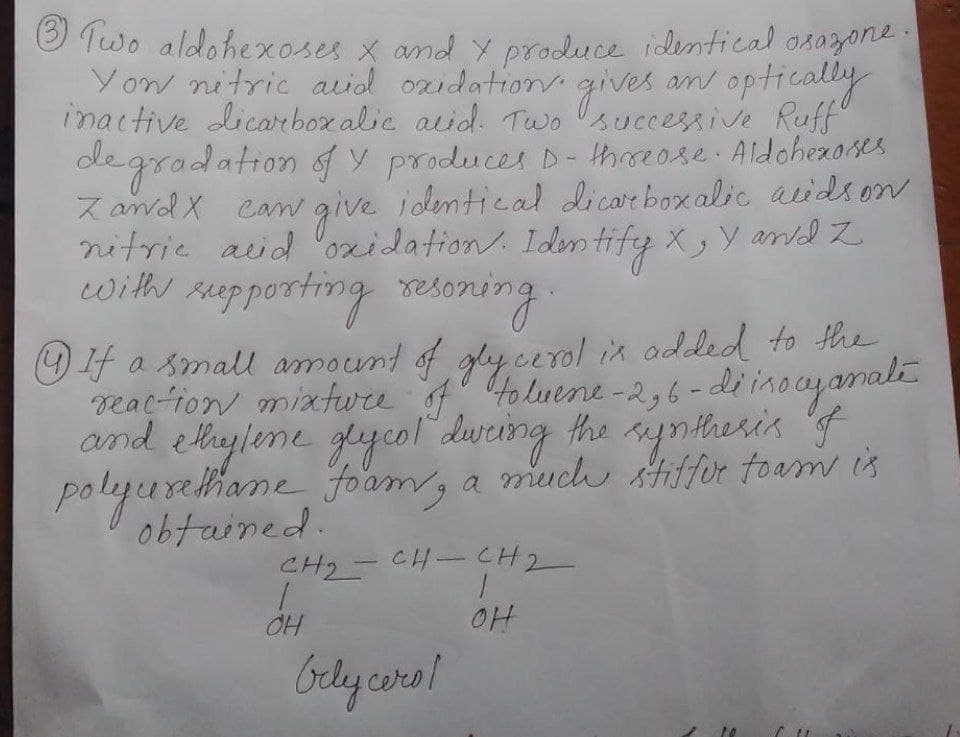 ③ Two aldohexoses X and Y produce identical osazone.
Y on nitric acid oxidation gives an optically
inactive dicarboxalic acid. Two successive Ruff
degradation of Y produces D-threose. Aldohexoses
Z and X can give identical dicarboxalic acids on
nitric acid oxidation. Identify X, Y and Z
with supporting resoning.
④ If a small amount of glycerol is added to the
reaction mixture of toluene-2,6-diisocyanate
and ethylene glycol during the synthesis of
polyurethane foam, a much stiffer foam is
obtained.
CH2 - CH - CH2
OH OH
Glycerol